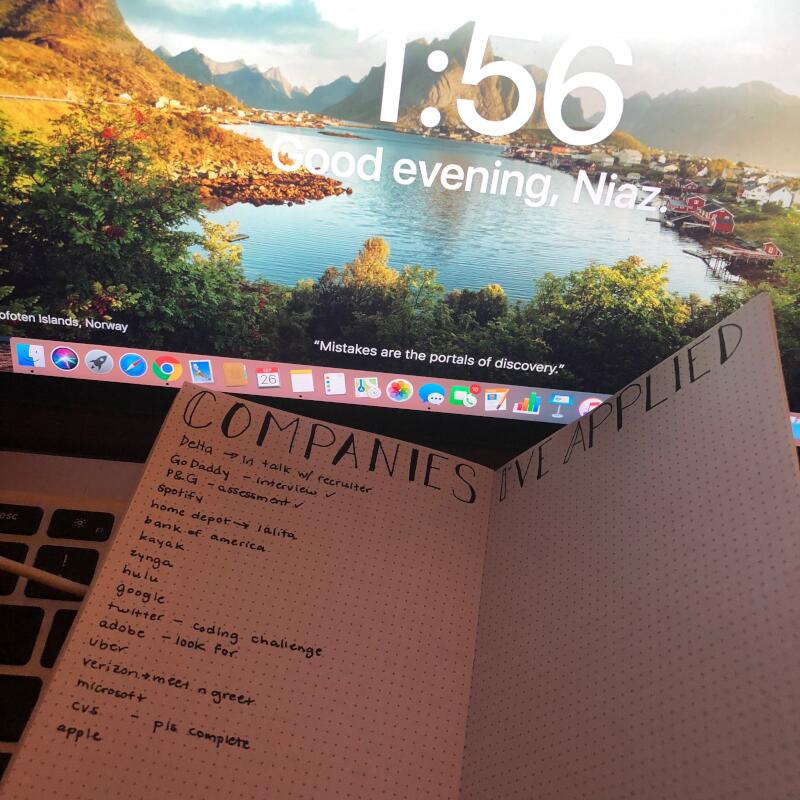 1:56
Good evening, Niaz.
ofoten Islands, Norway
“Mistakes are the portals of discovery.”
SEP
26
10
COMPANIES I'VE APPLIED
Delta → in talk w/ recruiter
GoDaddy - interview ✓
P&G - assessment ✓
Spotify
home depot → lalita
bank of america
kayak
zynga
hulu
google
twitter - coding challenge
adobe - look for
uber
verizon → meet n greet
microsoft
cvs - pls complete
apple
esc
F1
!